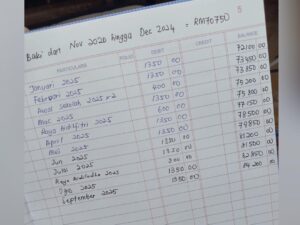 Baki dari Nov 2020 hingga Dec 2024 = RM70750
PARTICULARS FOLIO DEBIT CREDIT BALANCE
Januari 2025 1350 00 72100 00
Februari 2025 1350 00 73450 00
Awal Sekolah 2025 x2 400 00
Mac 2025 1350 00
Raya Aidilfitri 2025 600 00
April 2025 1350 00 77150 00
Mei 2025 1350 00 78500 00
Jun 2025 1350 00 79850 00
Julai 2025 1350 00 81200
Raya Aidiladha 2025 300 00 81500 00
Ogos 2025 1350 00 32850 00
September 2025 1350 00 84200 00